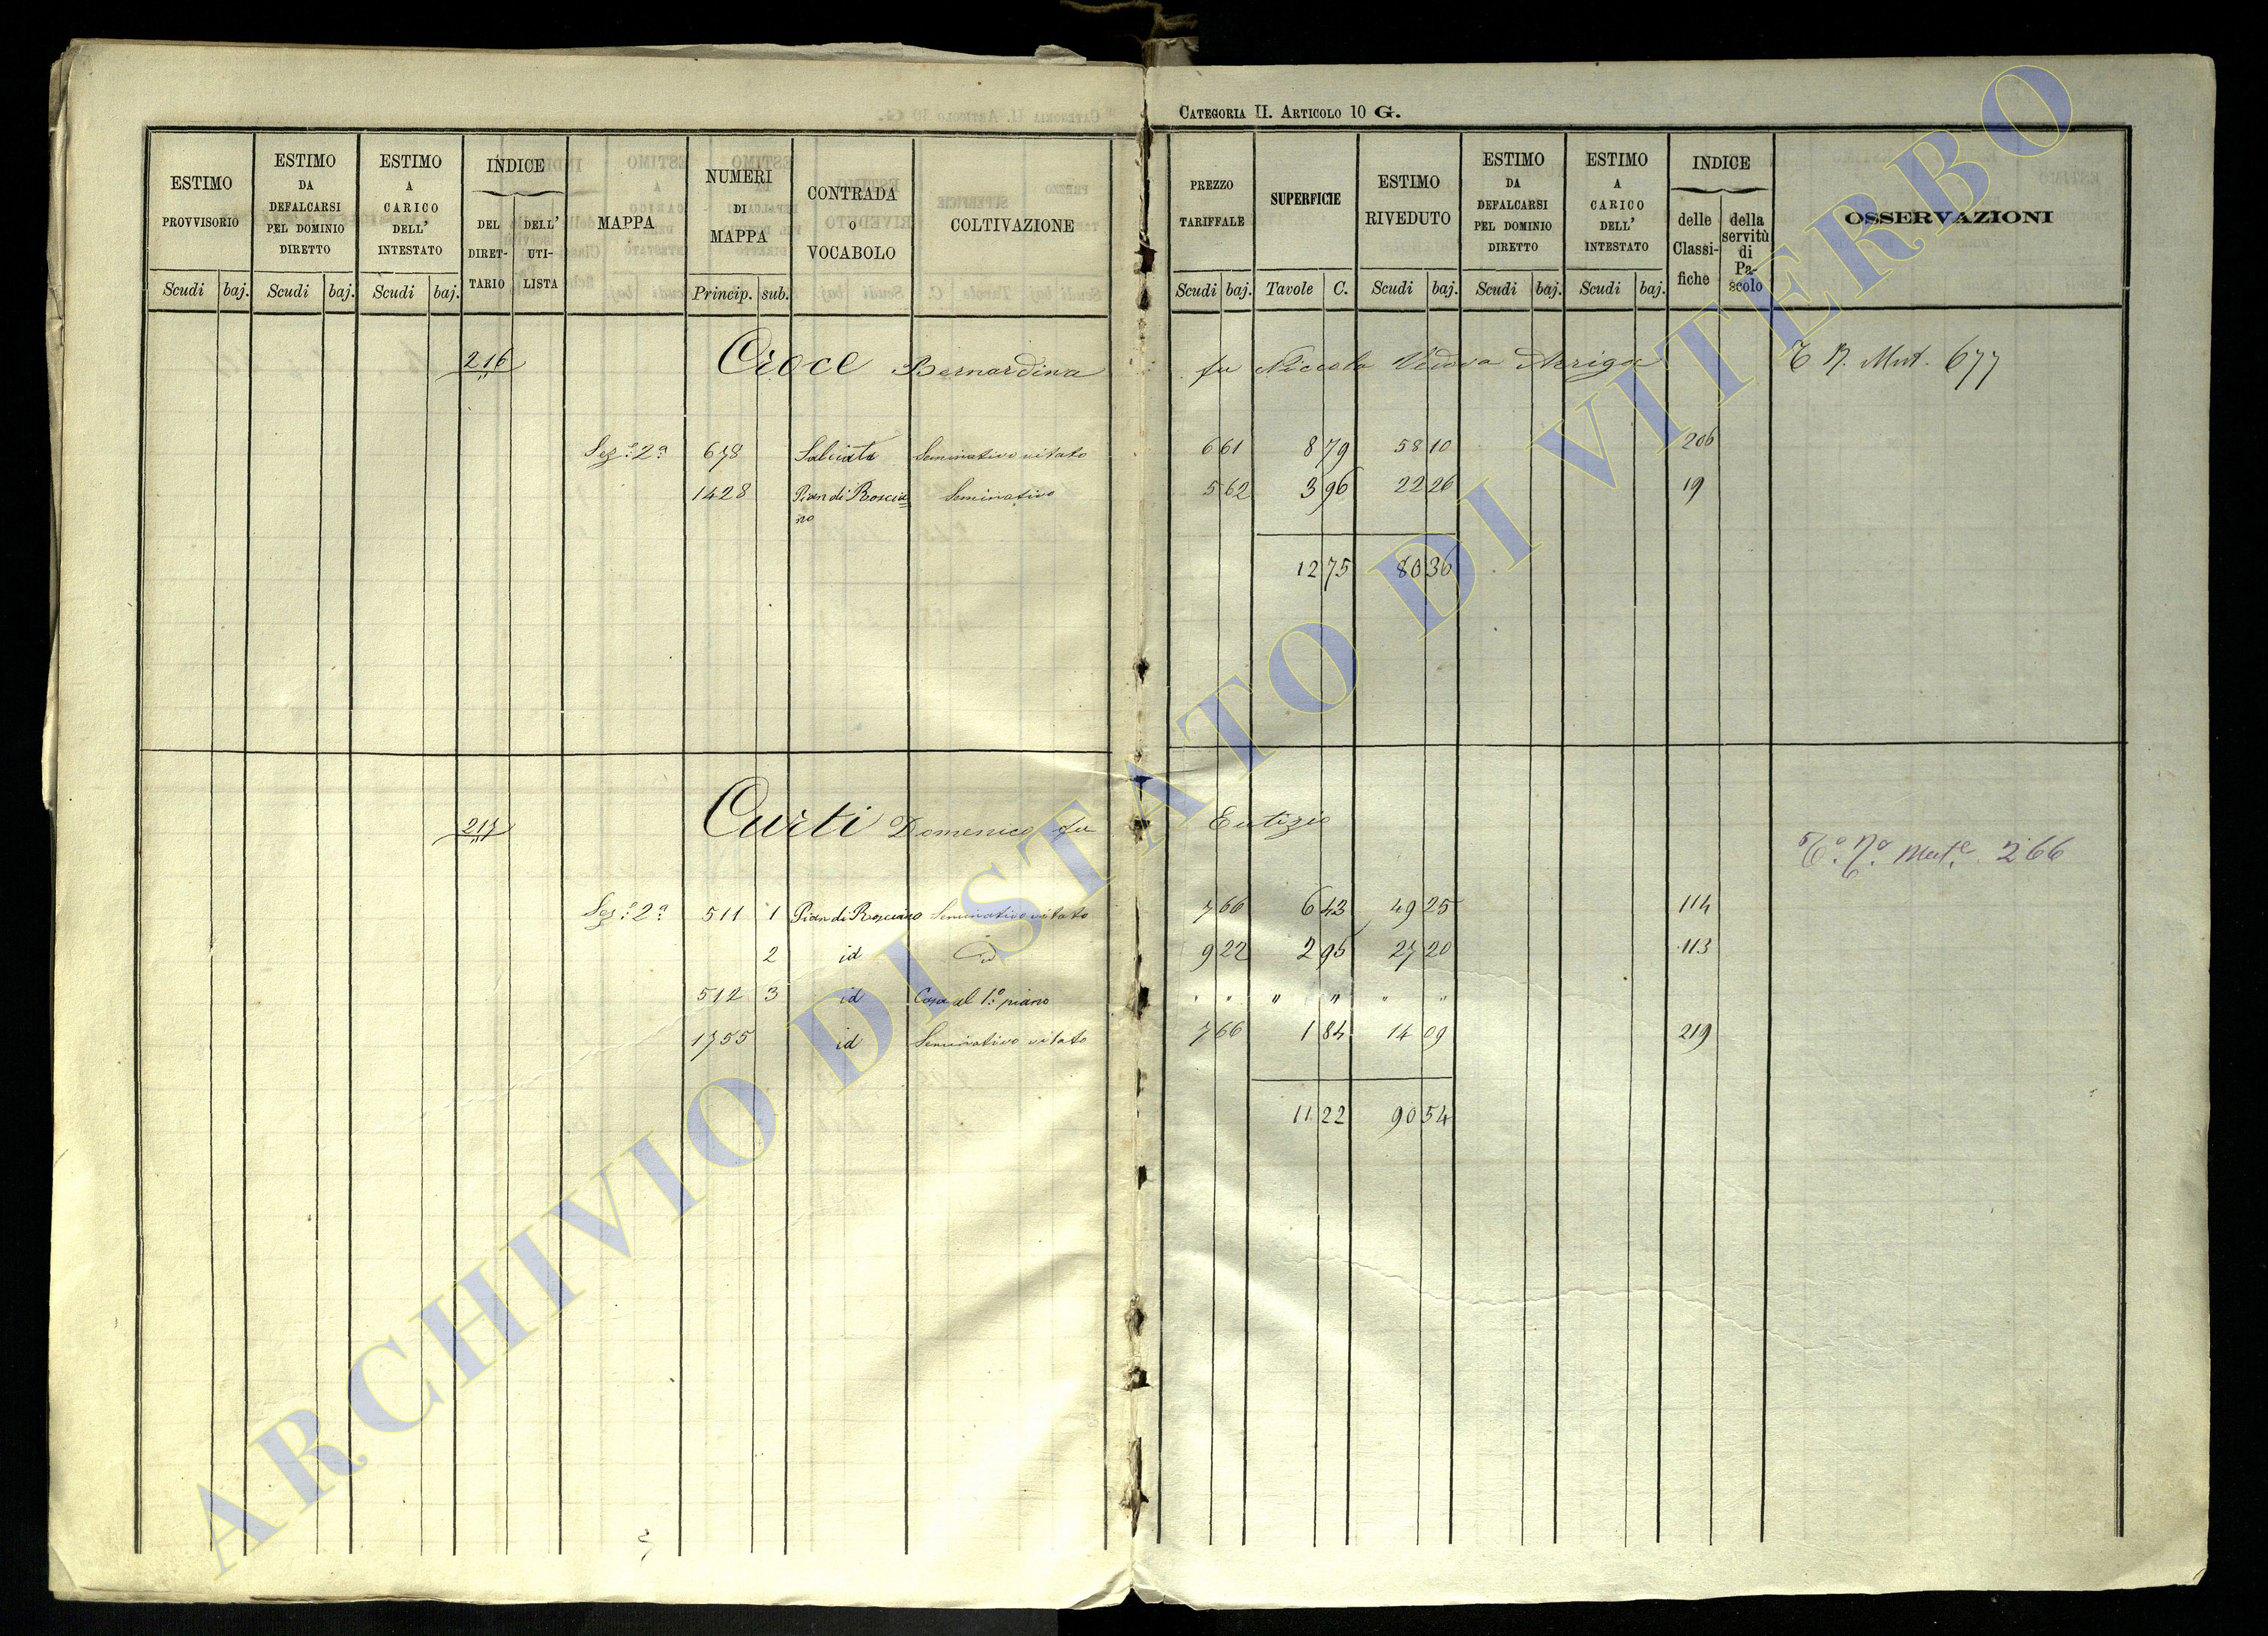 CATEGORIA II. ARTICOLO 10 G.
ESTIMO PROVVISORIO | ESTIMO DA DEFALCARSI PEL DOMINIO DIRETTO | ESTIMO A CARICO DELL' INTESTATO | INDICE DEL DIRET-TARIO | DELL' UTI-LISTA | MAPPA | NUMERI DI MAPPA | CONTRADA O VOCABOLO | COLTIVAZIONE | PREZZO TARIFFALE | SUPERFICIE | ESTIMO RIVEDUTO | ESTIMO DA DEFALCARSI PEL DOMINIO DIRETTO | ESTIMO A CARICO DELL' INTESTATO | INDICE delle Classi-fiche | della servitù di Pa-scolo | OSSERVAZIONI
Scudi | baj. | Scudi | baj. | Scudi | baj. | Princip. | sub. | Scudi | baj. | Tavole | C. | Scudi | baj. | Scudi | baj. | Scudi | baj.
216 Croce Bernardina fu Niccola Vedova Arriga T. N. Mut. 677
Sez.e 2a 678 Salciata Seminativo vitato 6 61 8 79 58 10 206
1428 Pian di Roscia= Seminativo 5 62 3 96 22 26 19
no
12 75 80 36
217 Curti Domenico fu Eutizio
To. No. Mut.e 266
Sez.e 2a 511 1 Pian di Rosciano Seminativo vitato 7 66 6 43 49 25 114
2 id id 9 22 2 95 27 20 113
512 3 id Casa al 1o. piano " " " " " "
1755 id Seminativo vitato 7 66 1 84 14 09 219
11 22 90 54
ARCHIVIO DI STATO DI VITERBO